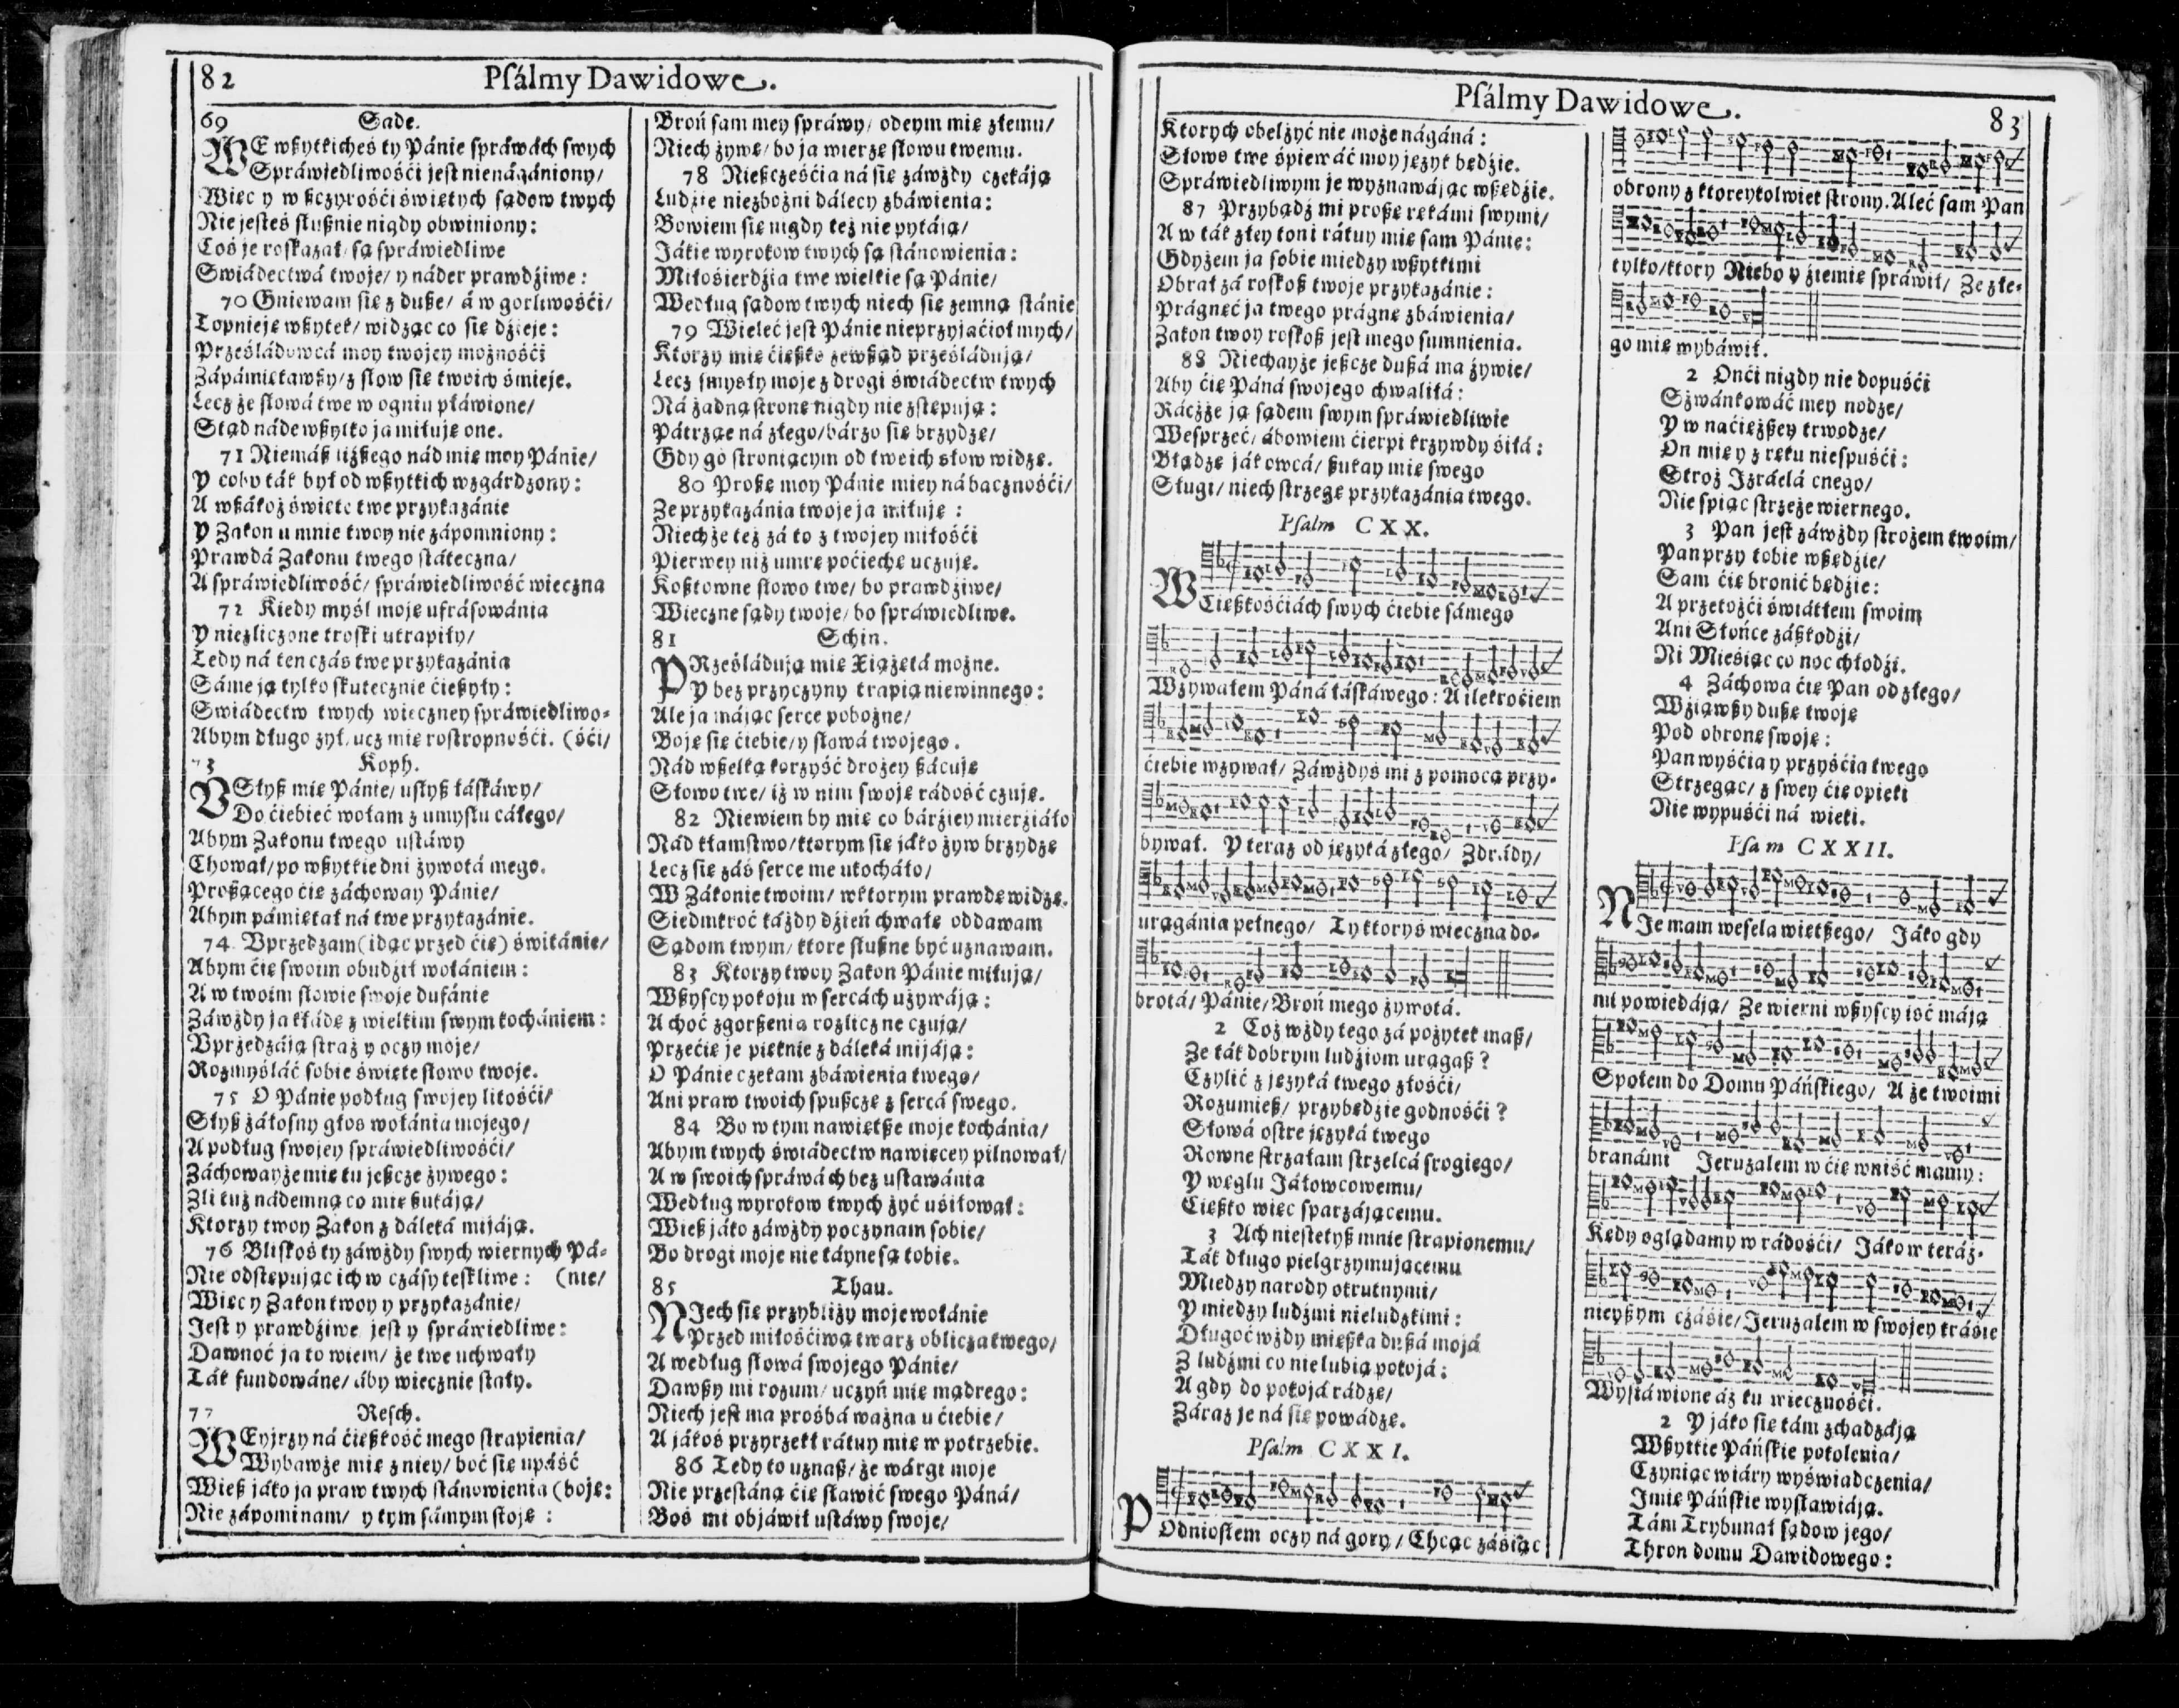 82 Psálmy Dawidowe.
69 Sade.
WE wßytkicheś ty Pánie spráwách swych
Spráwiedliwośći jest nienágániony/
Więc y w ßczyrośći świętych sądow twych
Nie jesteś słußnie nigdy obwiniony:
Coś je roskazał/ są spráwiedliwe
Swiádectwá twoje/ y náder prawdźiwe:
70 Gniewam się z duße/ á w gorliwośći/
Topnieję wßytek/ widząc co się dźieje:
Prześládowcá moy twojey możnośći
Zápámiętawßy/ z słow się twoich śmieje.
Lecz że słowá twe w ogniu płáwione/
Stąd náde wßytko ja miłuję one.
71 Niemáß liżßego nád mię moy Pánie/
Y coby ták był od wßytkich wzgárdzony:
A wßákoż święte twe przykazánie
Y Zakon u mnie twoy nie zápomniony:
Prawdá Zakonu twego státeczna/
A spráwiedliwość/ spráwiedliwość wieczna
72 Kiedy myśl moję ufrásowánia
Y niezliczone troski utrapiły/
Tedy ná ten czás twe przykazánia
Sáme ją tylko skutecznie ćießyły:
Swiádectw twych wieczney spráwiedliwo-
Abym długo żył/ ucz mię rostropnośći. (śći/
73 Koph.
VSłyß mię Pánie/ usłyß łáskáwy/
Do ćiebieć wołam z umysłu cáłego/
Abym Zakonu twego ustáwy
Chował/ po wßytkie dni żywotá mego.
Proßącego ćię záchoway Pánie/
Abym pámiętał ná twe przykazánie.
74 Vprzedzam (idąc przed ćię) świtánie/
Abym ćię swoim obudźił wołániem:
A w twoim słowie swoje dufánie
Záwżdy ja kłádę z wielkim swym kochániem:
Vprzedzáją straż y oczy moje/
Rozmyśláć sobie święte słowo twoje.
75 O Pánie podług swojey litośći/
Słyß żáłosny głos wołánia mojego/
A podług swojey spráwiedliwośći/
Záchowayże mię tu jeßcze żywego:
Zli tuż nádemną co mię ßukáją/
Ktorzy twoy Zakon z dáleká mijáją.
76 Bliskoś ty záwżdy swych wiernych Pá-
Nie odstępując ich w czásy teskliwe: (nie/
Więc y Zakon twoy y przykazánie/
Jest y prawdźiwe jest y spráwiedliwe:
Dawnoć ja to wiem/ że twe uchwały
Ták fundowáne/ áby wiecznie stały.
77 Resch.
WEyjrzy ná ćięßkość mego strapienia/
Wybawże mię z niey/ boć się upáść
Wieß jáko ja praw twych stánowienia (boję:
Nie zápominam/ y tym sámym stoję:
Broń sam mey spráwy/ odeym mię złemu/
Niech żywę/ bo ja wierzę słowu twemu.
78 Nießczęśćia ná się záwżdy czekáją
Ludźie niezbożni dálecy zbáwienia:
Bowiem się nigdy też nie pytáją/
Jákie wyrokow twych są stánowienia:
Miłośierdźia twe wielkie są Pánie/
Według sądow twych niech się zemną stánie
79 Wieleć jest Pánie nieprzyjaćioł mych/
Ktorzy mię ćięßko zewßąd prześládują/
Lecz smysły moje z drogi świádectw twych
Ná żadną stronę nigdy nie zstępują:
Pátrząc ná złego/ bárzo się brzydzę/
Gdy go stroniącym od twoich słow widzę.
80 Proßę moy Pánie miey ná bacznośći/
Ze przykazánia twoje ja miłuję:
Niechże też zá to z twojey miłośći
Pierwey niż umrę poćiechę uczuję.
Koßtowne słowo twe/ bo prawdźiwe/
Wieczne sądy twoje/ bo spráwiedliwe.
81 Schin.
PRześládują mię Xiążętá możne.
Y bez przyczyny trapią niewinnego:
Ale ja májąc serce pobożne/
Boję się ćiebie/ y słowá twojego.
Nád wßelką korzyść drożey ßácuję
Słowo twe/ iż w nim swoję rádość czuję.
82 Niewiem by mię co bárźiey mierźiáło
Nád kłamstwo/ ktorym się jáko żyw brzydzę
Lecz się zás serce me ukocháło/
W Zákonie twoim/ w ktorym prawdę widzę.
Siedmkroć káżdy dźień chwałę oddawam
Sądom twym/ ktore słußne być uznawam.
83 Ktorzy twoy Zakon Pánie miłują/
Wßyscy pokoju w sercách używáją:
A choć zgorßenia rozliczne czują/
Przećię je pięknie z dáleká mijáją:
O Pánie czekam zbáwienia twego/
Ani praw twoich spußczę z sercá swego.
84 Bo w tym nawiętße moje kochánia/
Abym twych świádectw nawięcey pilnował/
A w swoich spráwách bez ustawánia
Według wyrokow twych żyć uśiłował:
Wieß jáko záwżdy poczynam sobie/
Bo drogi moje nie táyne są tobie.
85 Thau.
NJech się przybliży moje wołánie
Przed miłośćiwą twarz oblicza twego/
A według słowá swojego Pánie/
Dawßy mi rozum/ uczyń mię mądrego:
Niech jest ma prośbá ważna u ćiebie/
A jákoś przyrzekł rátuy mię w potrzebie.
86 Tedy to uznaß/ że wárgi moje
Nie przestáną ćię sławić swego Páná/
Boś mi objáwił ustáwy swoje/
Psálmy Dawidowe. 83
Ktorych obelżyć nie może nágáná:
Słowo twe śpiewáć moy język będźie.
Spráwiedliwym je wyznawájąc wßędźie.
87 Przybądź mi proßę rękámi swymi/
A w ták złey toni rátuy mię sam Pánie:
Gdyżem ja sobie miedzy wßytkimi
Obrał zá roskoß twoje przykazánie:
Prágnęć ja twego prágnę zbáwienia/
Zakon twoy roskoß jest mego sumnienia.
88 Niechayże jeßcze dußá ma żywie/
Aby ćię Páná swojego chwaliłá:
Ráczże ją sądem swym spráwiedliwie
Wesprzeć/ ábowiem ćierpi krzywdy śiłá:
Błądzę ják owcá/ ßukay mię swego
Sługi/ niech strzegę przykazánia twego.
Psalm CXX.
WCięßkośćiách swych ćiebie sámego
Wzywałem Páná łáskáwego: A ilekroćiem
ćiebie wzywał/ Záwżdyś mi z pomocą przy-
bywał. Y teraz od językázłego/ Zdrády/
urągánia pełnego/ Ty ktoryś wieczna do-
brotá/ Pánie/ Broń mego żywotá.
2 Coż wżdy tego zá pożytek maß/
Ze ták dobrym ludźiom urągaß?
Czylić z języká twego złośći/
Rozumieß/ przybędźie godnośći?
Słowá ostre języká twego
Rowne strzałam strzelcá srogiego/
Y węglu Jáłowcowemu/
Cięßko więc sparzájącemu.
3 Ach niestetyß mnie strapionemu/
Ták długo pielgrzymującemu
Miedzy narody okrutnymi/
Y miedzy ludźmi nieludzkimi:
Długoć wżdy mießka dußá mojá
Z ludźmi co nie lubią pokojá:
A gdy do pokojá rádzę/
Záraz je ná się powádzę.
Psalm CXXI.
POdniosłem oczy ná gory/ Chcąc zásiąc
obrony z ktoreykolwiek strony. Aleć sam Pan
tylko/ ktory Niebo y źiemię spráwił/ Ze złe-
go mię wybáwił.
2 Onći nigdy nie dopuśći
Szwánkowáć mey nodze/
Y w naćięższey trwodze/
On mię y z ręku niespuśći:
Stroż Jzráelá cnego/
Nie śpiąc strzeże wiernego.
3 Pan jest záwżdy strożem twoim/
Pan przy tobie wßędźie/
Sam ćię bronić będźie:
A przetożći świátłem swoim
Ani Słońce záßkodźi/
Ni Mieśiąc co noc chłodźi.
4 Záchowa ćię Pan od złego/
Wźiąwßy dußę twoję
Pod obronę swoję:
Pan wyśćia y przyśćia twego
Strzegąc/ z swey ćię opieki
Nie wypuśći ná wieki.
Psalm CXXII.
NJe mam wesela więtßego/ Jáko gdy
mi powiedáją/ Ze wierni wßyscy iść máją
Społem do Domu Páńskiego/ A że twoimi
branámi Jeruzalem w ćię wniść mamy:
Kędy oglądamy w rádośći/ Jáko w teráź-
nieyßym czáśie/ Jeruzalem w swojey kráśie
Wystáwione áż ku wiecznośći.
2 Y jáko się tám zchadzáją
Wßytkie Páńskie pokolenia/
Czyniąc wiáry wyświadczenia/
Jmię Páńskie wysławiáją.
Tám Trybunał sądow jego/
Thron domu Dawidowego: